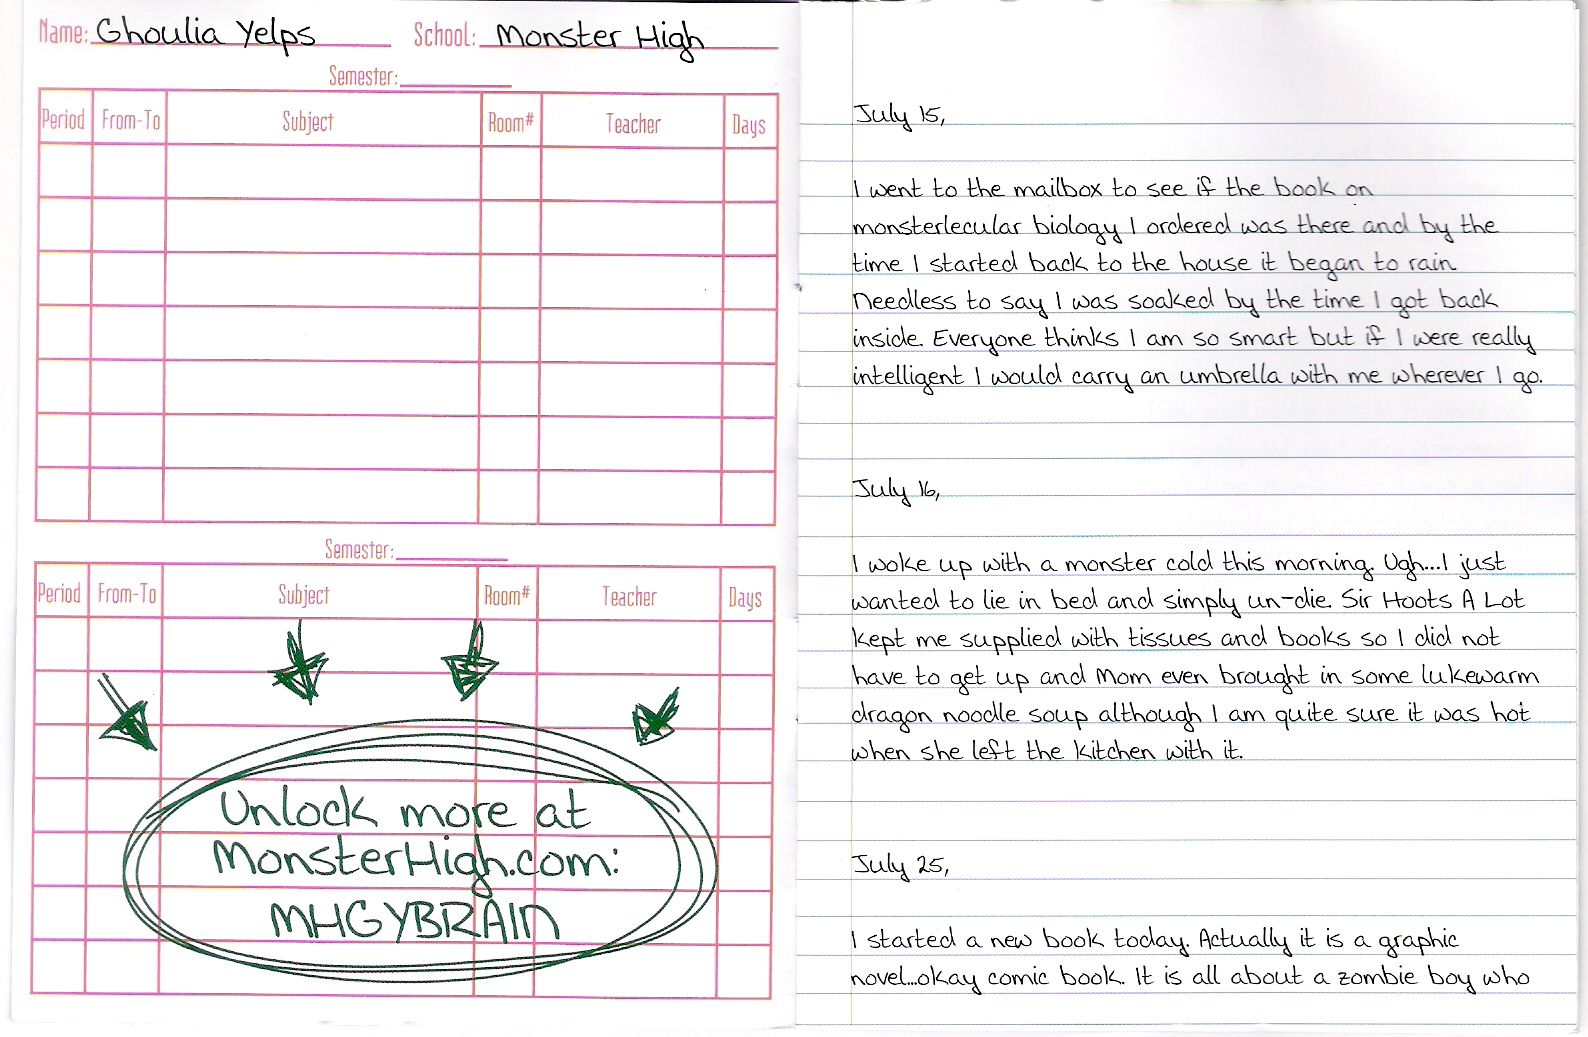 Name: Ghoulia Yelps School: Monster High
Semester:
Period From-To Subject Room# Teacher Days
Semester:
Period From-To Subject Room# Teacher Days
Unlock more at
MonsterHigh.com:
MHGYBRAIN
July 15,
I went to the mailbox to see if the book on
monsterlecular biology I ordered was there and by the
time I started back to the house it began to rain.
Needless to say I was soaked by the time I got back
inside. Everyone thinks I am so smart but if I were really
intelligent I would carry an umbrella with me wherever I go.
July 16,
I woke up with a monster cold this morning. Ugh...I just
wanted to lie in bed and simply un-die. Sir Hoots A Lot
kept me supplied with tissues and books so I did not
have to get up and Mom even brought in some lukewarm
dragon noodle soup although I am quite sure it was hot
when she left the kitchen with it.
July 25,
I started a new book today. Actually it is a graphic
novel...okay comic book. It is all about a zombie boy who